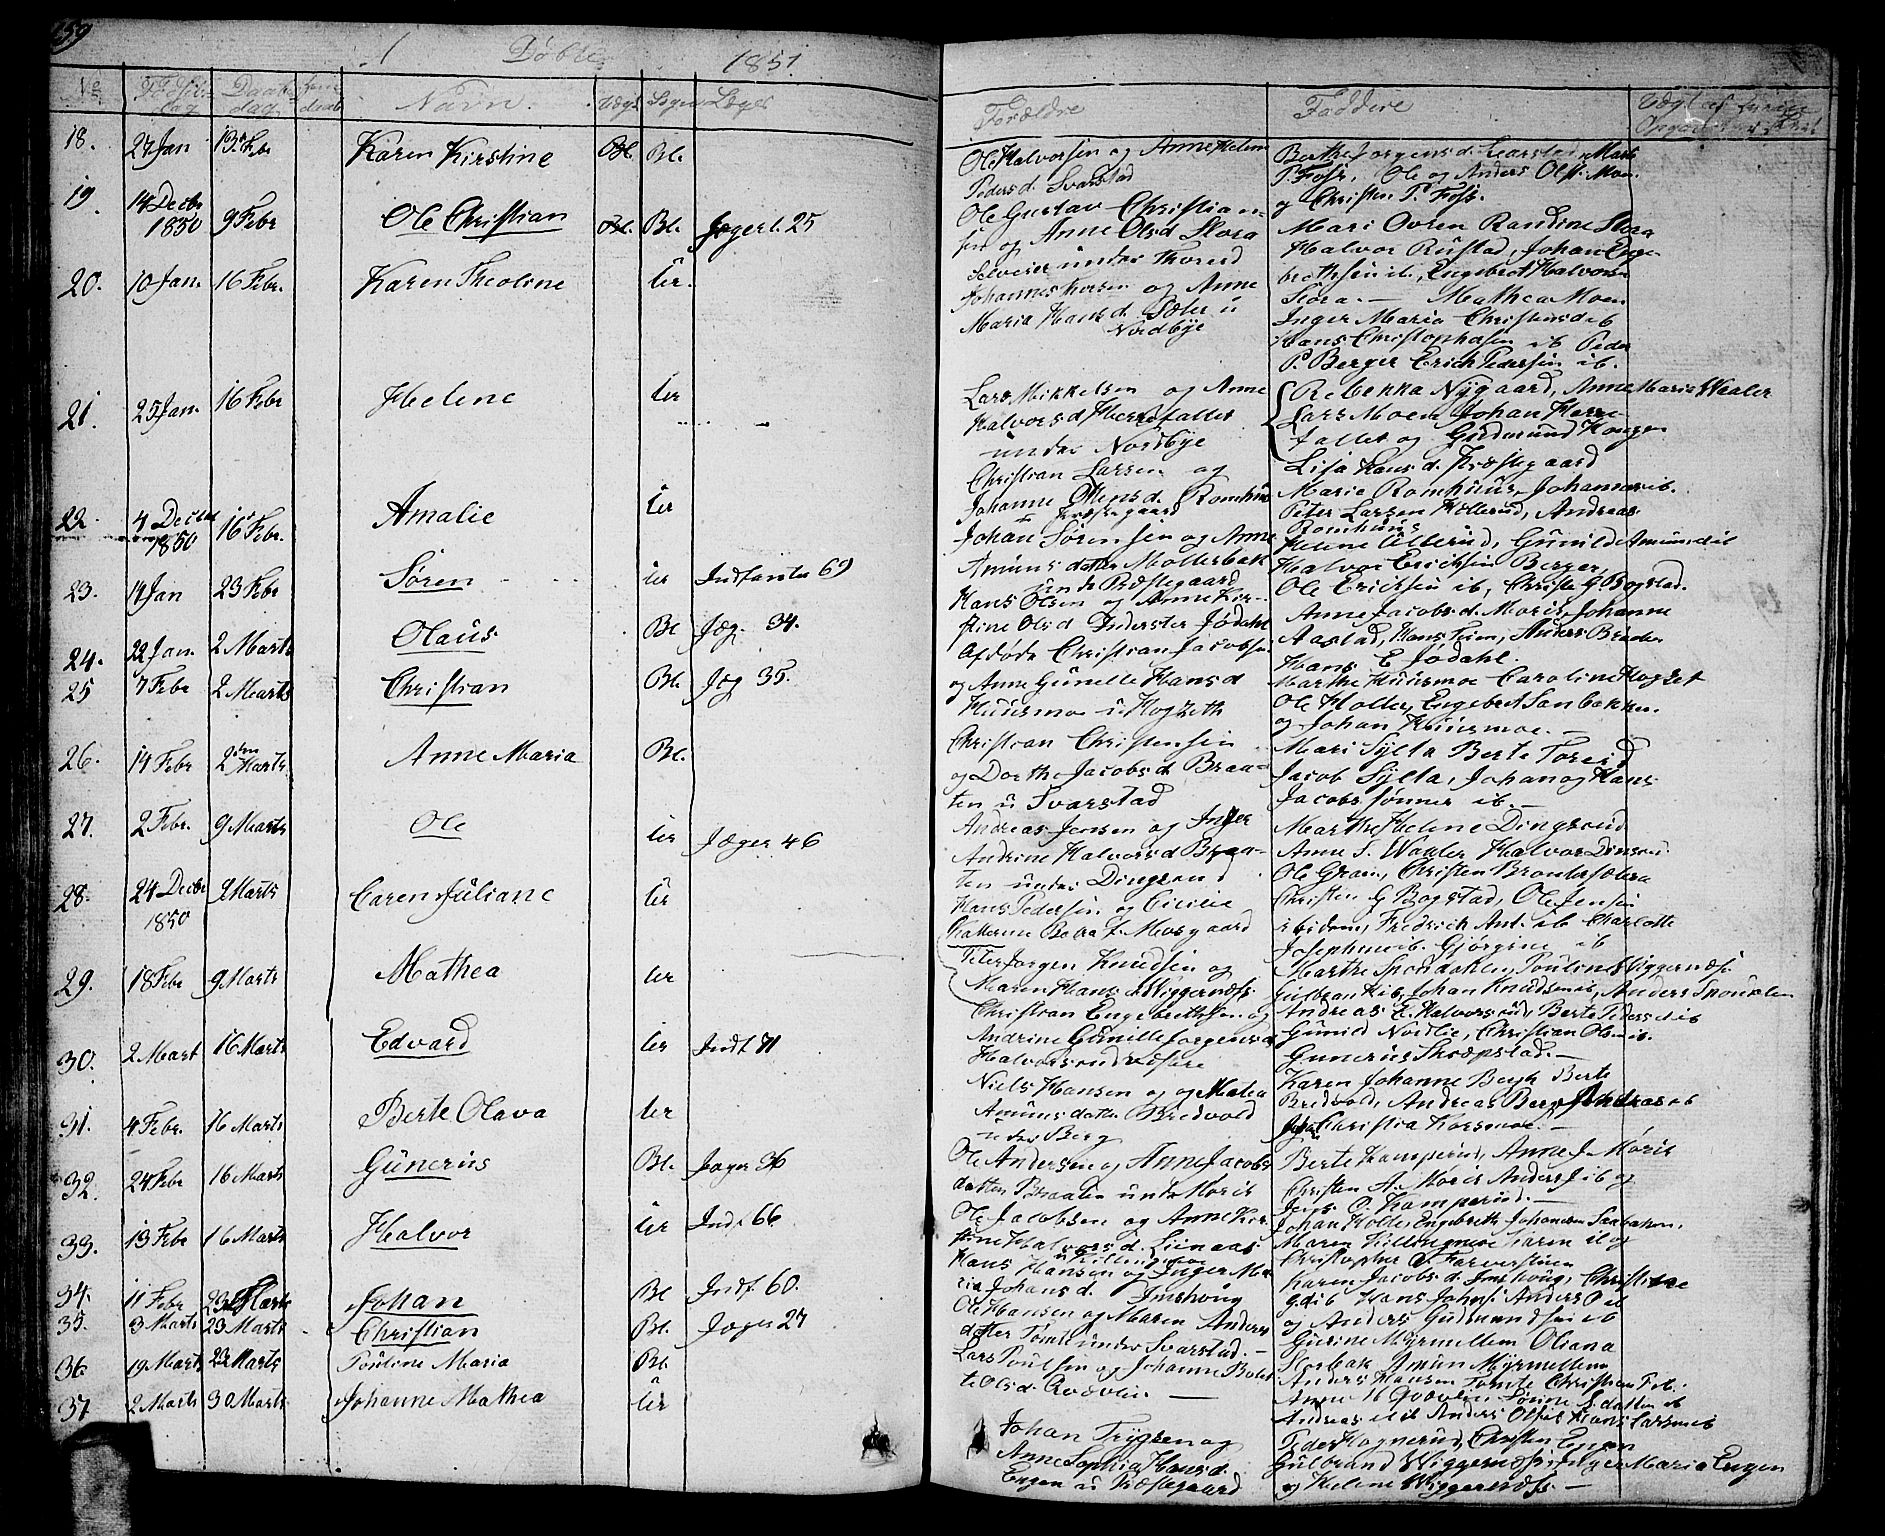 159
Döbte 1851
No Födsels dag Daabs dag hjem daab Navn Sogn Læger Forældre Faddere
18. 27 Jan 13 Febr Karen Kirstine Bl. Bl.
Ole Halvorsen og Anne Helene
Peders d. Svarstad
Berthe Jorgens d. Svarstad, Marte
P. Foss, Ole og Anders Olss: Moen
og Christen P. Foss.
19. 14 Decbr 1850 9 Febr Ole Christian Bl. Bl. Jægerl. 25
Ole Gustav Christian-
sen og Anne Olsd Slora
Selveier under Thoresd
Mari Ovren Randine Slora
Halvor Rustad, Johan Enge
brethsen ib, Engebret Halvorsen
Slora. — Mathea Moen
20. 10 Jan. 16 Febr. Karen Theoline ler.
Johannes Iversen og Anne
Maria Hans d. Sæter u
Nordbye
Inger Maria Christensd ib
Hans Christophersen ib Peder
P. Berger Erich Pedersen ib.
21. 25 Jan. 16 Febr Helene ler
Lars Mikkelsen og Anne
Halvors d Herrefallet
under Nordbye
Rebekka Nygaard, Anne Maria Waaler
Lars Moen Johan Herre
fallet og Gudmund Haugen
22. 4 Decbr 1850 16 Febr. Amalie ler
Christian Larsen og
Johanne Olsens d. Romhuus
u Præstegaard
Lisa Hans d. Præstegaard
Marie Romhuus, Johannes ib.
Peter Larsen Hellerud, Andreas
Romhuus
23. 14 Jan 23 Febr Søren ler Indfanter 69
Johan Sørensen og Anne
Amunds datter Mollerbak
under Præstegaard
Helene Ullerud, Gunild Amunsd ib
Halvor Erichsen Berger,
Ole Erichsen ib, Christe G. Bogstad.
24. 22 Jan. 2 Marts Olaus Bl Jæg. 34.
Hans Olsen og Anne Kir-
stine Olsd Jødahl
Anne Jacobs d. Moris, Johanne
Aastad, Hans Feim, Anders Braaten
Hans E Jødahl.
25 7 Febr 2 Marts Christian Bl. Jæg 35.
Afdøde Christian Jacobsen
og Anne Gunille Hans d
Huusmoe u Hogseth
Marthe Huusmoe Caroline Hogset
Ole Holter, Engebret Sanbakken.
og Johan Huusmoe. —
26. 14 Febr 2den Marts Anne Maria Bl.
Christian Christensen
og Dorthe Jacobs d Braa-
ten u Svarstad
Mari Sylta Berte Toresd
Jacob Sylta, Johan og Hans
Jacobs sønner ib. —
27. 2 Febr. 9 Marts Ole ler Jæger 46
Andreas Jensen og Inger
Andrine Halvors d Braa-
ten under Dingsrud
Marthe Helene Dingsrud
Anne S. Waaler Halvor Dinsrud
Ole Gram, Christen Brontesæter
28. 24 Decbr 1850 9 Marts Caren Juliane ler
Hans Pedersen og Cicilie
Katherine Morgaard
Christen G Bogstad, Ole Jensen
ibidem, Fredrich Ant. ib Charlotte
Josephine ib. Gjørgine ib
29. 18 Febr 9 Marts Mathea ler
Peter Jorgen Knudsen og
Maren Hans d Wiggernæss
Marthe Spondalen, Pouline Wiggernæss
Gulbran H ib, Johan Knudsen ib, Anders Spondalen
30. 2 Mart 16 Marts Edvard ler Indf 71
Christian Engebrethsen og
Andrine Gunille Jorgens
Halvorsrud
Andreas E. Halvorsrud, Berte Peders d ib
Gunild Nordlie, Christian Olsen ib.
Gunerius Skræpstad. —
31. 4 Febr. 16 Marts Berte Olava ler
Niels Hansen og og Malia
Amunsdatter Bredvold
under Berg
Karen Johanne Bergh Berte
Bredvold, Andreas Berg, Andreas ib
Christia Korsmoe. —
32. 24 Febr 16 Marts Gunerius Bl. Jæger 36
Ole Andersen og Anne Jacobs
datter Braaten under Moris
Berte Kamperud, Anne J. Moris
Christen A. Moris Anders J ib og
Jens O. Kamperud. —
33. 13 Febr 16 Marts Halvor ler Indf 66
Ole Jacobsen og Anne Kir
stine Halvors d. Lienaas
u Killingmoe
Johan Holter, Engebreth Johannesen Sanbakken.
Maren Killingmoe Karen ib og
Christopher Farverstuen
34. 11 Febr 23 Marts Johan Bl Indf. 60.
Hans Hansen og Inger Ma
ria Johans d. Imshoug
Karen Jacobs d. Imshoug, Christine
G d ib Hans Johns: Anders P ib
og Anders Gudmundsen ib
35. 3 Marts 23 Marts Christian Bl. Jæger 27
Ole Hansen og Maren Anders
datter Tømte under Svarstad. —
Gurine Myrmellem Oliana
Storbak Amun Myrmellem
Anders Hansen Tømte Christian P ib.
36. 19 Marts 23 Marts Pouline Maria Bl.
Lars Poulsen og Johanne Bolet
te Ols d. Qvævlie. —
Anne Qvævlie, Sørine A datter ib
Andreas ib Anders Olsen Hans Larsen ib
37 2 Marts 30 Marts Johanne Mathea ler
Johan Trygsen og
Anne Sophia Hans d.
Engen u Præstegaard
Peder Hagnerud, Christen Engen
Gulbrand Wiggernæss Inger Maria Engen
og Helene Wiggernæss. —